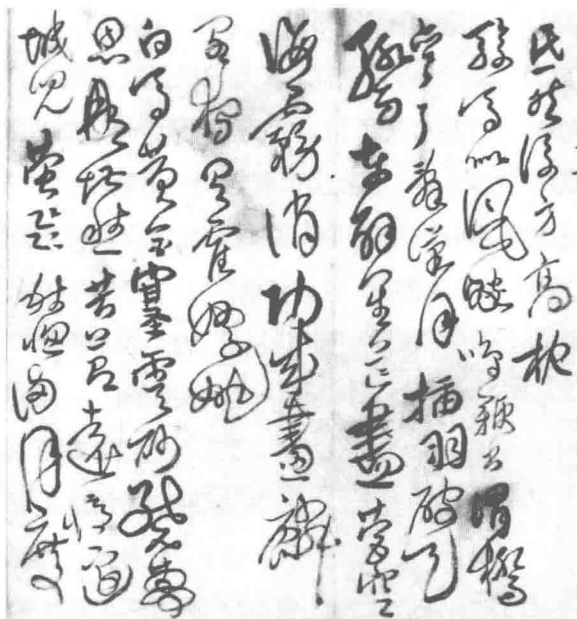 氏然後方高枕
駿馬似風飆鳴鞭出渭橋
彎弓辭漢月插羽破天
驕陣解星芒盡營空
海霧消功成畫麟
閣獨有霍嫖姚
白馬黃金塞雲砂繞夢
思那堪愁苦節遠憶邊
城兒螢飛秋窗滿月度